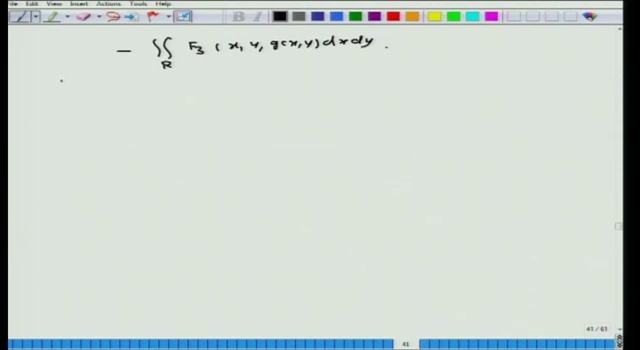 File Edit View Insert Actions Tools Help
B I
− ∬ F₃ (x, y, g(x,y) dx dy.
R
41 / 61
41